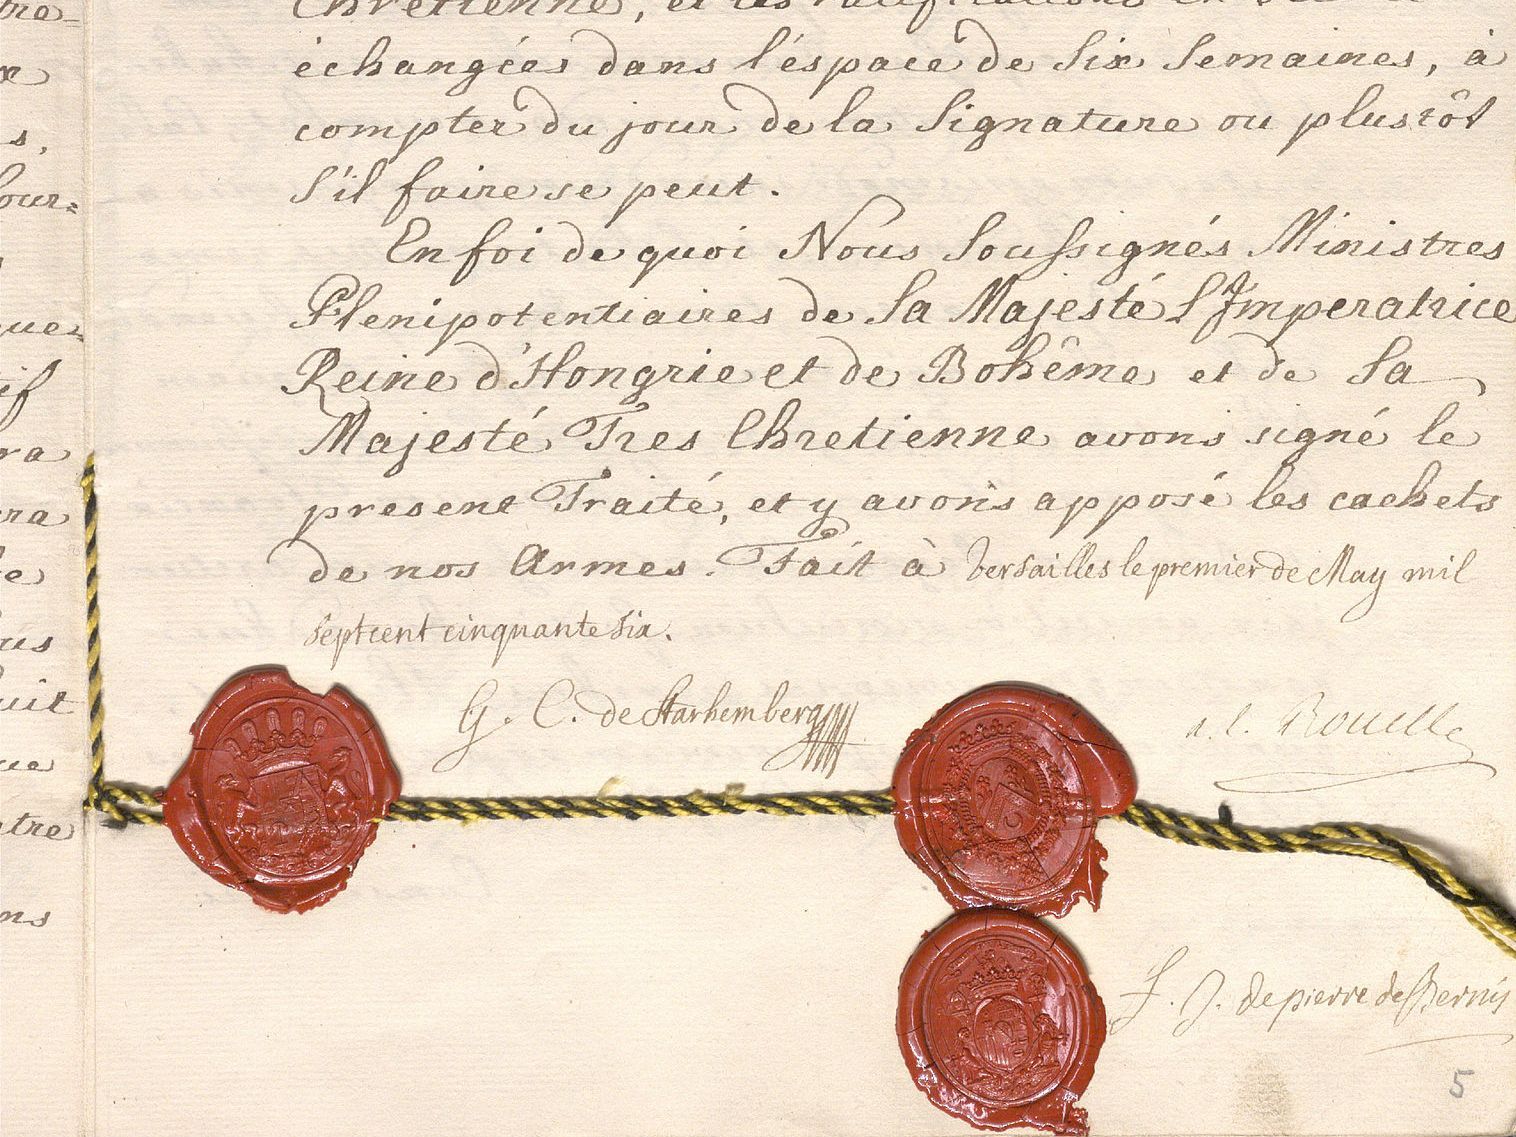 échangées dans l'éspace de Six Semaines, à
compter du jour de la Signature ou plustôt
S'il faire se peut.
En foi de quoi Nous Soussignés Ministres
Plenipotentiaires de Sa Majesté L'Imperatrice
Reine d'Hongrie et de Bohême et de Sa
Majesté Tres Chretienne avons signé le
present Traité, et y avons apposé les cachets
de nos Armes. Fait à Versailles le premier de May mil
septcent cinquante six.
G. C. de Starhemberg
a. l. Rouillé
F. J. de pierre de Bernis
5